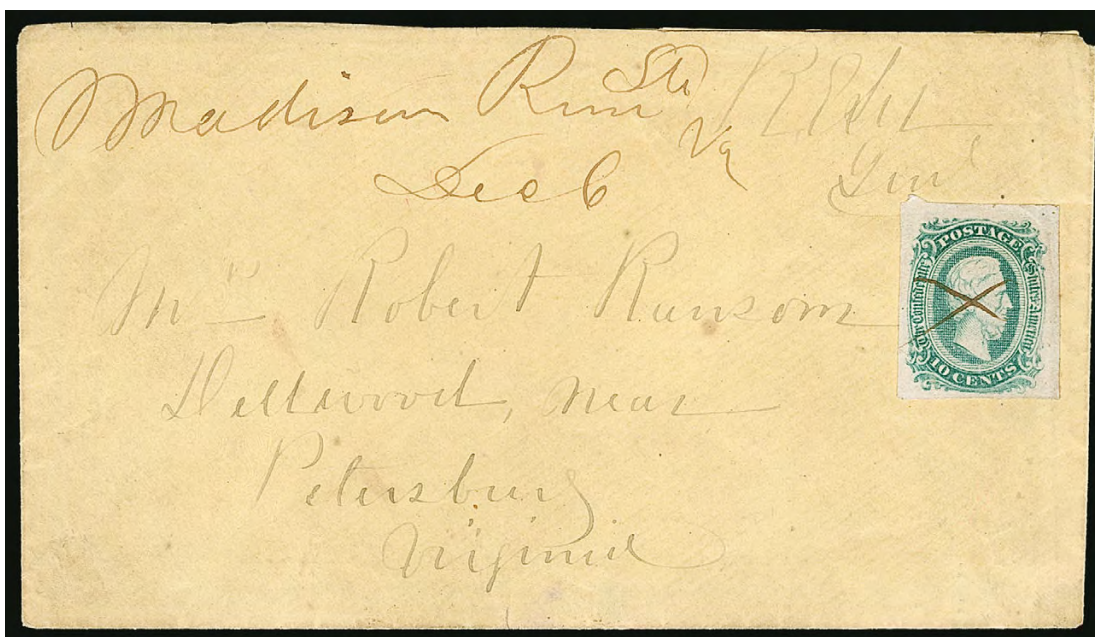 Madison Run Sta
Va
Dec 6
Mr Robert Ransom
Dellwood, near
Petersburg
Virginia
POSTAGE
The Confederate States of America
10 CENTS